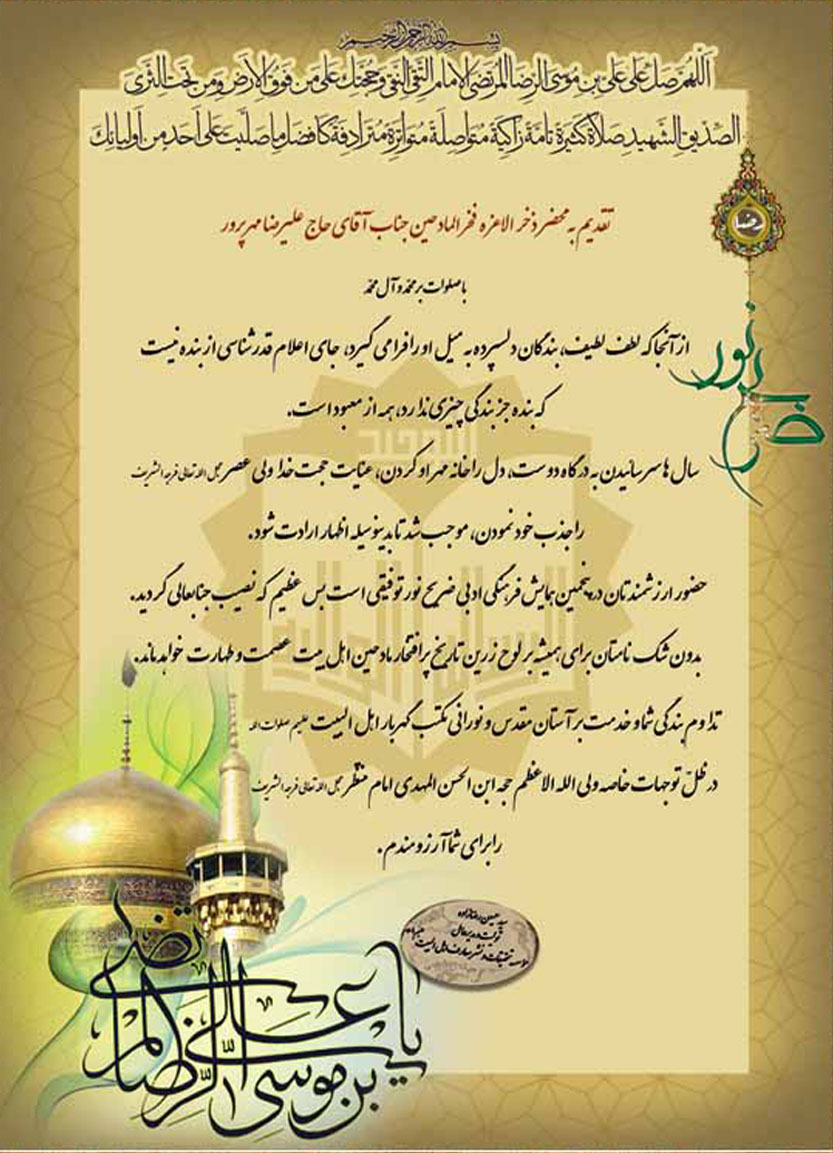 بسم الله الرحمن الرحیم
اَللّهُمَّ صَلِّ عَلى عَلِيِّ بنِ مُوسَى الرِّضَا المُرتَضَى الاِمامِ التَّقِيِّ النَّقِيِّ وَحُجَّتِكَ عَلى مَن فَوقَ الاَرضِ وَمَن تَحتَ الثَّرى
الصِّدّيقِ الشَّهيدِ صَلاةً كَثيرَةً تامَّةً زاكِيَةً مُتَواصِلَةً مُتَواتِرَةً مُتَرادِفَةً كَاَفضَلِ ما صَلَّيتَ عَلى اَحَدٍ مِن اَولِيائِكَ
رضا
تقدیم به محضر ذخر الاعزه فخر المادحین جناب آقای حاج علیرضا مهرپرور
با صلوات بر محمد و آل محمد
از آنجا که لطف لطیف، بندگان دلسپرده به میل او را فرا می گیرد، جای اعلام قدرشناسی از بنده نیست
که بنده جز بندگی چیزی ندارد، همه از معبود است.
ضریح نور
سال ها سر سائیدن به درگاه دوست، دل را خانه مهر او کردن، عنایت حجت خدا ولی عصر عجل الله تعالی فرجه الشریف
را جذب خود نمودن، موجب شد تا بدینوسیله اظهار ارادت شود.
حضور ارزشمندتان در پنجمین همایش فرهنگی ادبی ضریح نور توفیقی است بس عظیم که نصیب جنابعالی گردید.
بدون شک نامتان برای همیشه بر لوح زرین تاریخ پر افتخار مادحین اهل بیت عصمت و طهارت خواهد ماند.
تداوم بندگی شما و خدمت بر آستان مقدس و نورانی مکتب گهربار اهل البیت علیهم صلوات الله
در ظلّ توجهات خاصه ولی الله الاعظم حجه ابن الحسن المهدی امام منتظر عجل الله تعالی فرجه الشریف
را برای شما آرزومندم.
سید حسین رضازاده
تولیت و مدیرعامل
موسسه تحقیقات و نشر معارف اهل البیت
یا علی بن موسی الرضا المرتضی